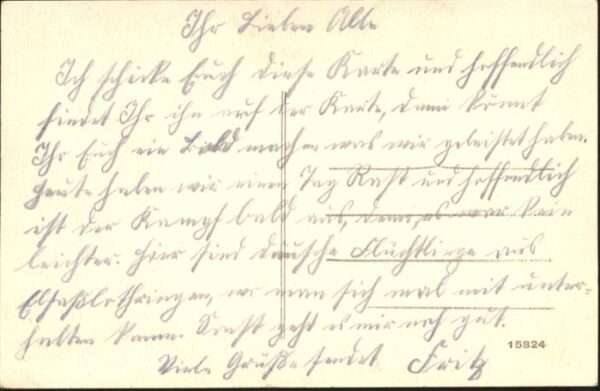 Ihr Lieben Alle
Ich schicke Euch diese Karte und hoffendlich
findet Ihr ihn auf der Karte, dann könnt
Ihr Euch ein Bild machen was wir geleistet haben.
Heute haben wir einen Tag Rast und hoffendlich
ist der Kampf bald aus, denn, es war kein
leichter. Hier sind deutsche Flüchtlinge aus
Elsaßlothringen, wo man sich mal mit unter-
halten kann. Sonst geht es mir noch gut.
15824
Viele Grüße sendet Fritz